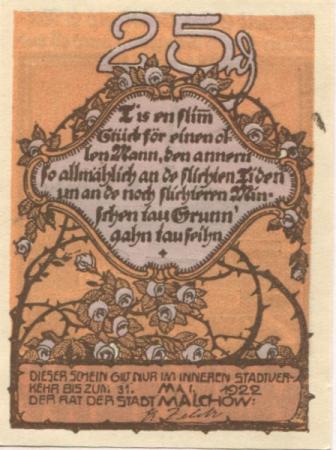 25 ₰
T'is en slim
Stück för einen ol-
len Mann, den annern
so allmählich an de slichten Tiden
un an de noch slichteren Min-
schen tau Grunn'
gahn tau seihn
DIESER SCHEIN GILT NUR IM INNEREN STADTVER-
KEHR BIS ZUM 31. MAI. 1922
DER RAT DER STADT MALCHOW: